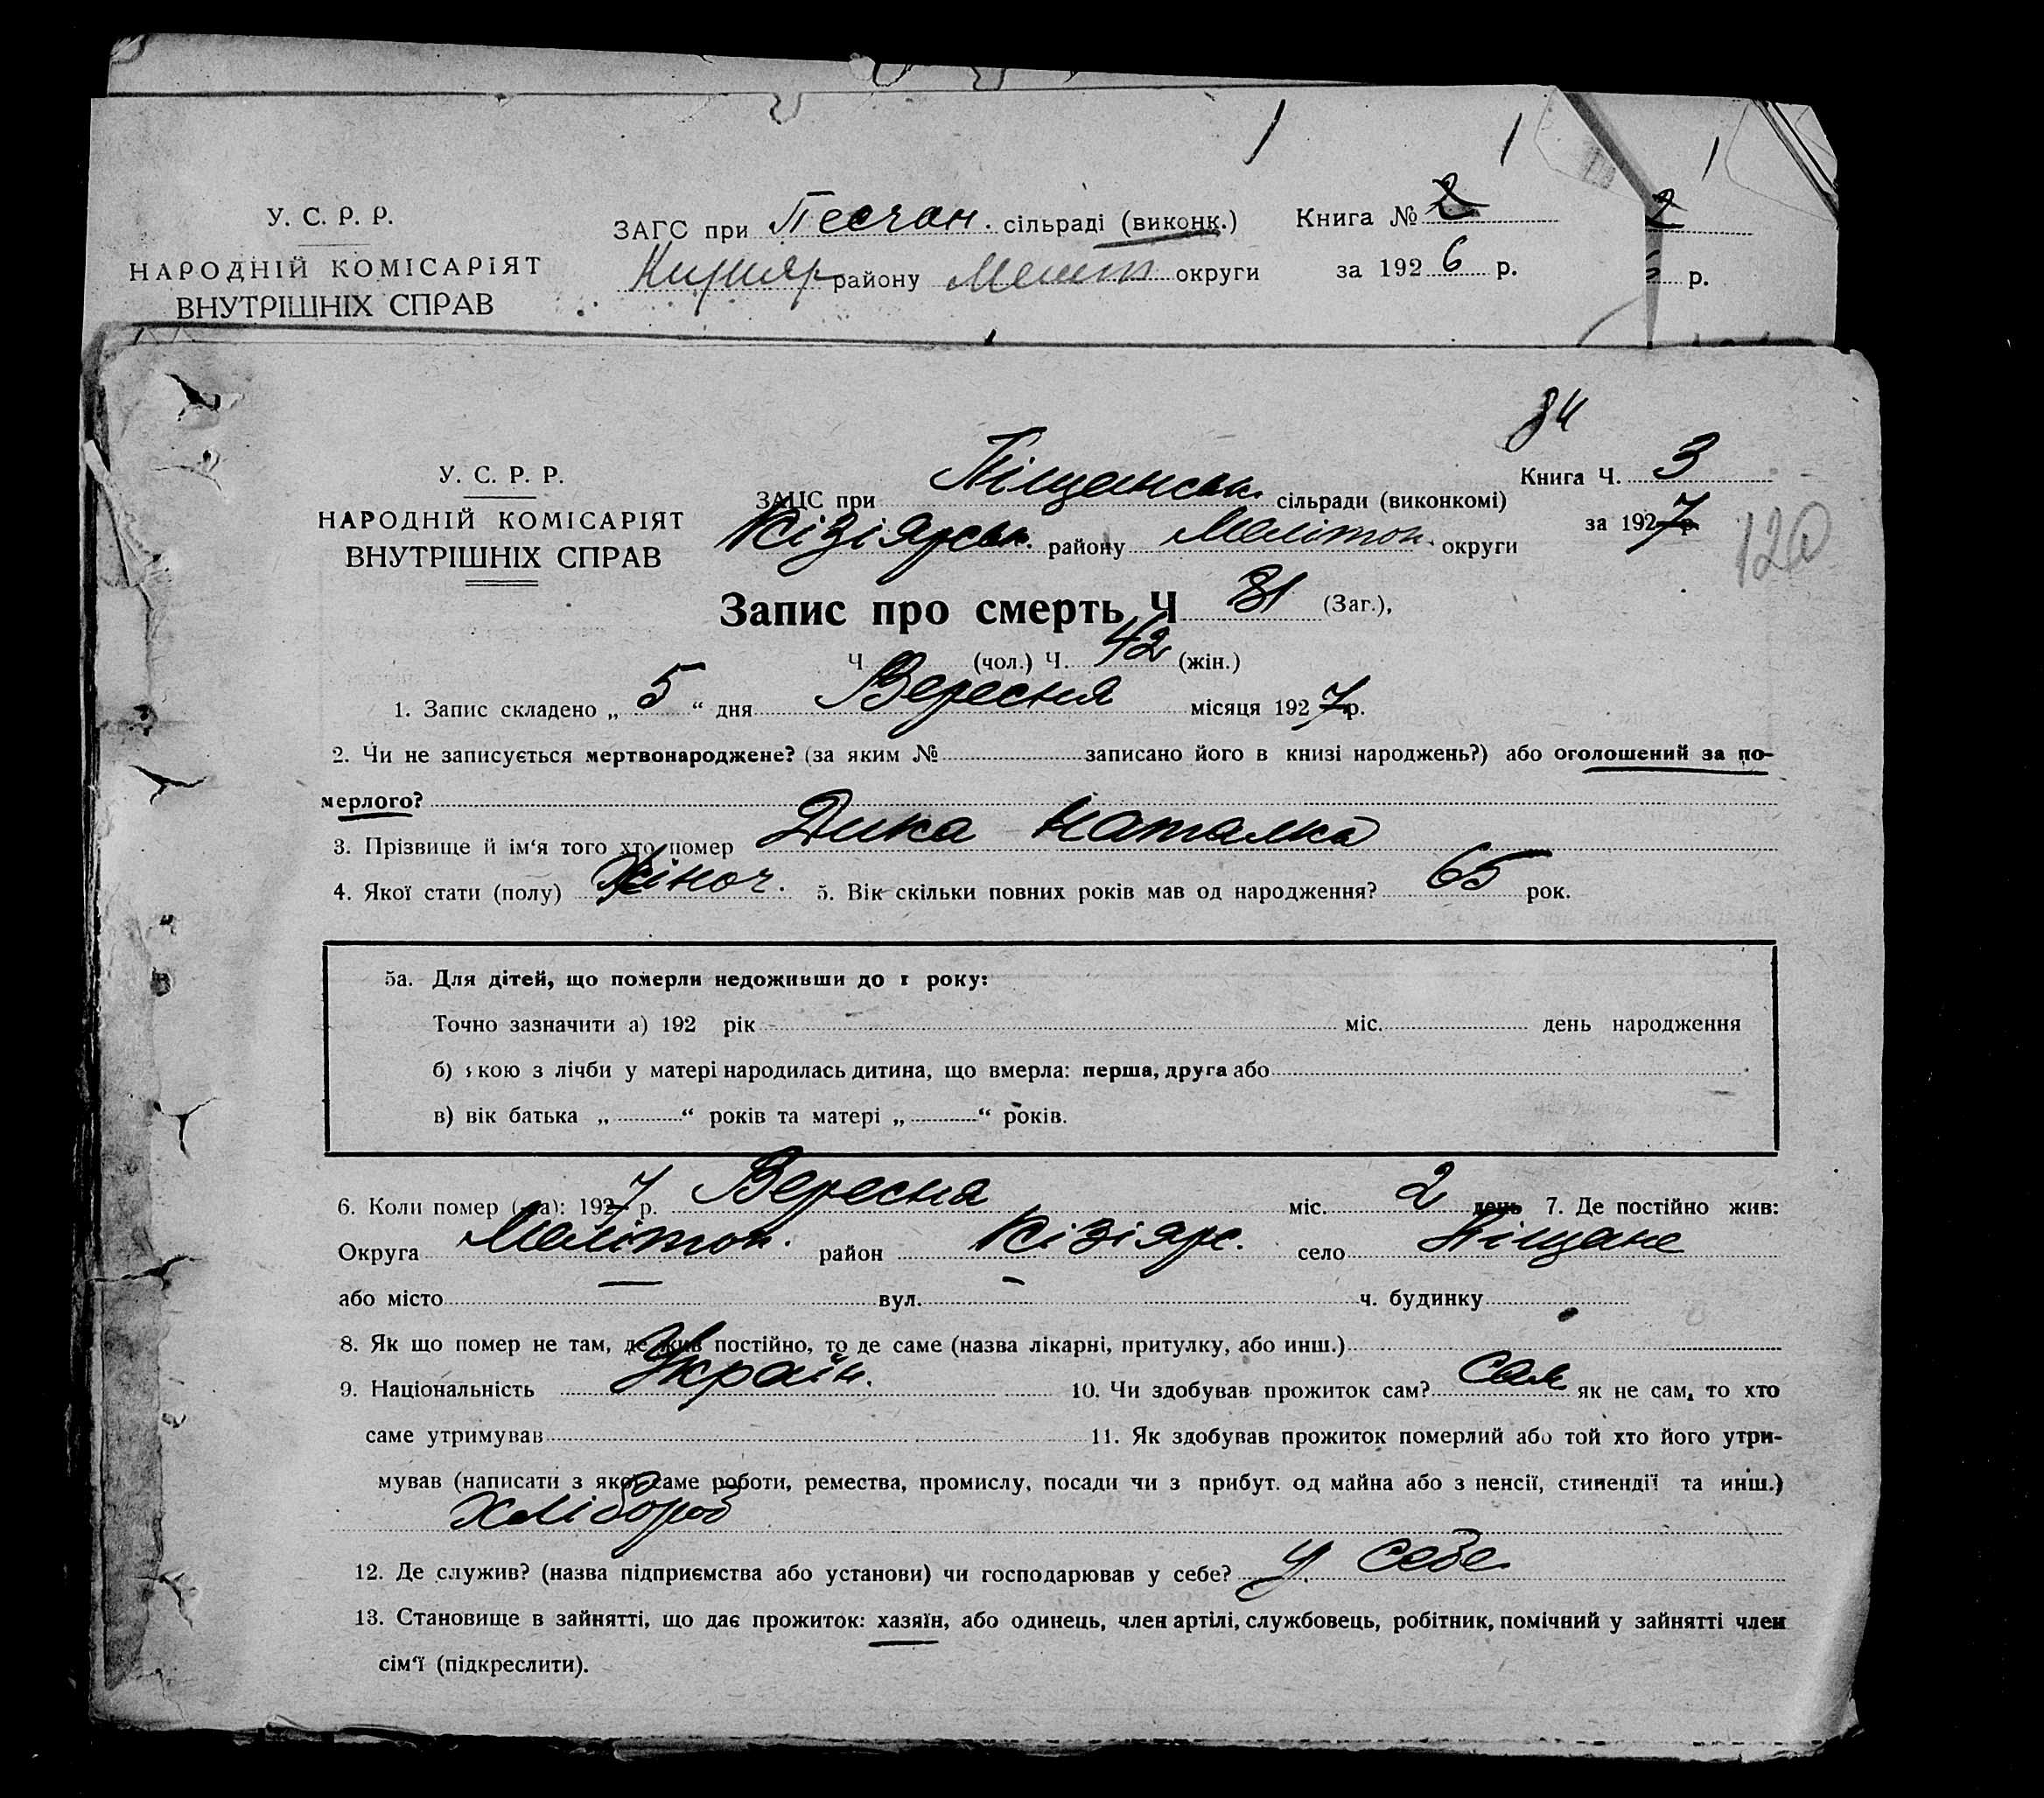 У. С. Р. Р.
НАРОДНІЙ КОМІСАРІЯТ
ВНУТРІШНІХ СПРАВ
ЗАГС при Песчан. сільраді (виконк.) Книга № 2
району Меліт округи за 1926 р.
2
6 р.
84
У. С. Р. Р.
НАРОДНІЙ КОМІСАРІЯТ
ВНУТРІШНІХ СПРАВ
ЗАЦС при Піщанськ. сільради (виконкомі) Книга Ч. 3
Кізіярськ. району Мелітоп. округи за 1927 р.
120
Запис про смерть Ч 81 (Заг.),
Ч (чол.) Ч. 42 (жін.)
1. Запис складено „ 5 “ дня Вересня місяця 1927 р.
2. Чи не записується мертвонароджене? (за яким № записано його в книзі народжень?) або оголошений за по-
мерлого?
3. Прізвище й ім'я того хто помер Дика Наталка
4. Якої стати (полу) Жіноч. 5. Вік скільки повних років мав од народження? 65 рок.
5а. Для дітей, що померли недоживши до 1 року:
Точно зазначити а) 192 рік міс. день народження
б) якою з лічби у матері народилась дитина, що вмерла: перша, друга або
в) вік батька „ “ років та матері „ “ років.
6. Коли помер (-ла): 1927 р. Вересня міс. 2 день 7. Де постійно жив:
Округа Мелітоп. район Кізіярс. село Піщане
або місто — вул. — ч. будинку
8. Як що помер не там, де жив постійно, то де саме (назва лікарні, притулку, або инш.)
9. Національність Україн. 10. Чи здобував прожиток сам? Сам як не сам, то хто
саме утримував 11. Як здобував прожиток померлий або той хто його утри-
мував (написати з якої саме роботи, ремества, промислу, посади чи з прибут. од майна або з пенсії, стипендії та инш.)
Хлібороб
12. Де служив? (назва підприємства або установи) чи господарював у себе? у себе
13. Становище в зайнятті, що дає прожиток: хазяїн, або одинець, член артілі, службовець, робітник, помічний у зайнятті член
сім'ї (підкреслити).